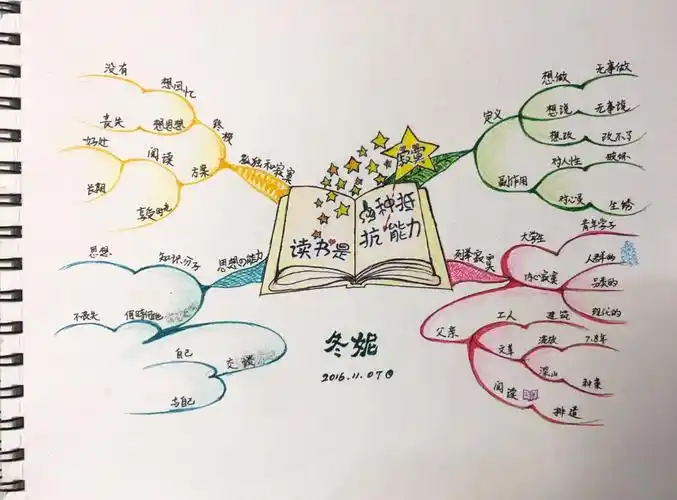 读书是
一种抵
抗 能力
寂寞
定义
想做
无事做
想说
无事说
想改
改不了
副作用
对人性
破坏
对心灵
生锈
列举寂寞
大学生
青年学子
内心寂寞
人群的
现代的
父亲
工人
建筑
文革
流放
7.8年
深山
种菜
阅读
排遣
孤独和寂寞
没有
想回忆
丧失
想思想
好处
阅读
方案
长期
思想的能力
知识分子
思想
不丧失
何时何地
自己
交谈
与自己
冬妮
2016.11.07